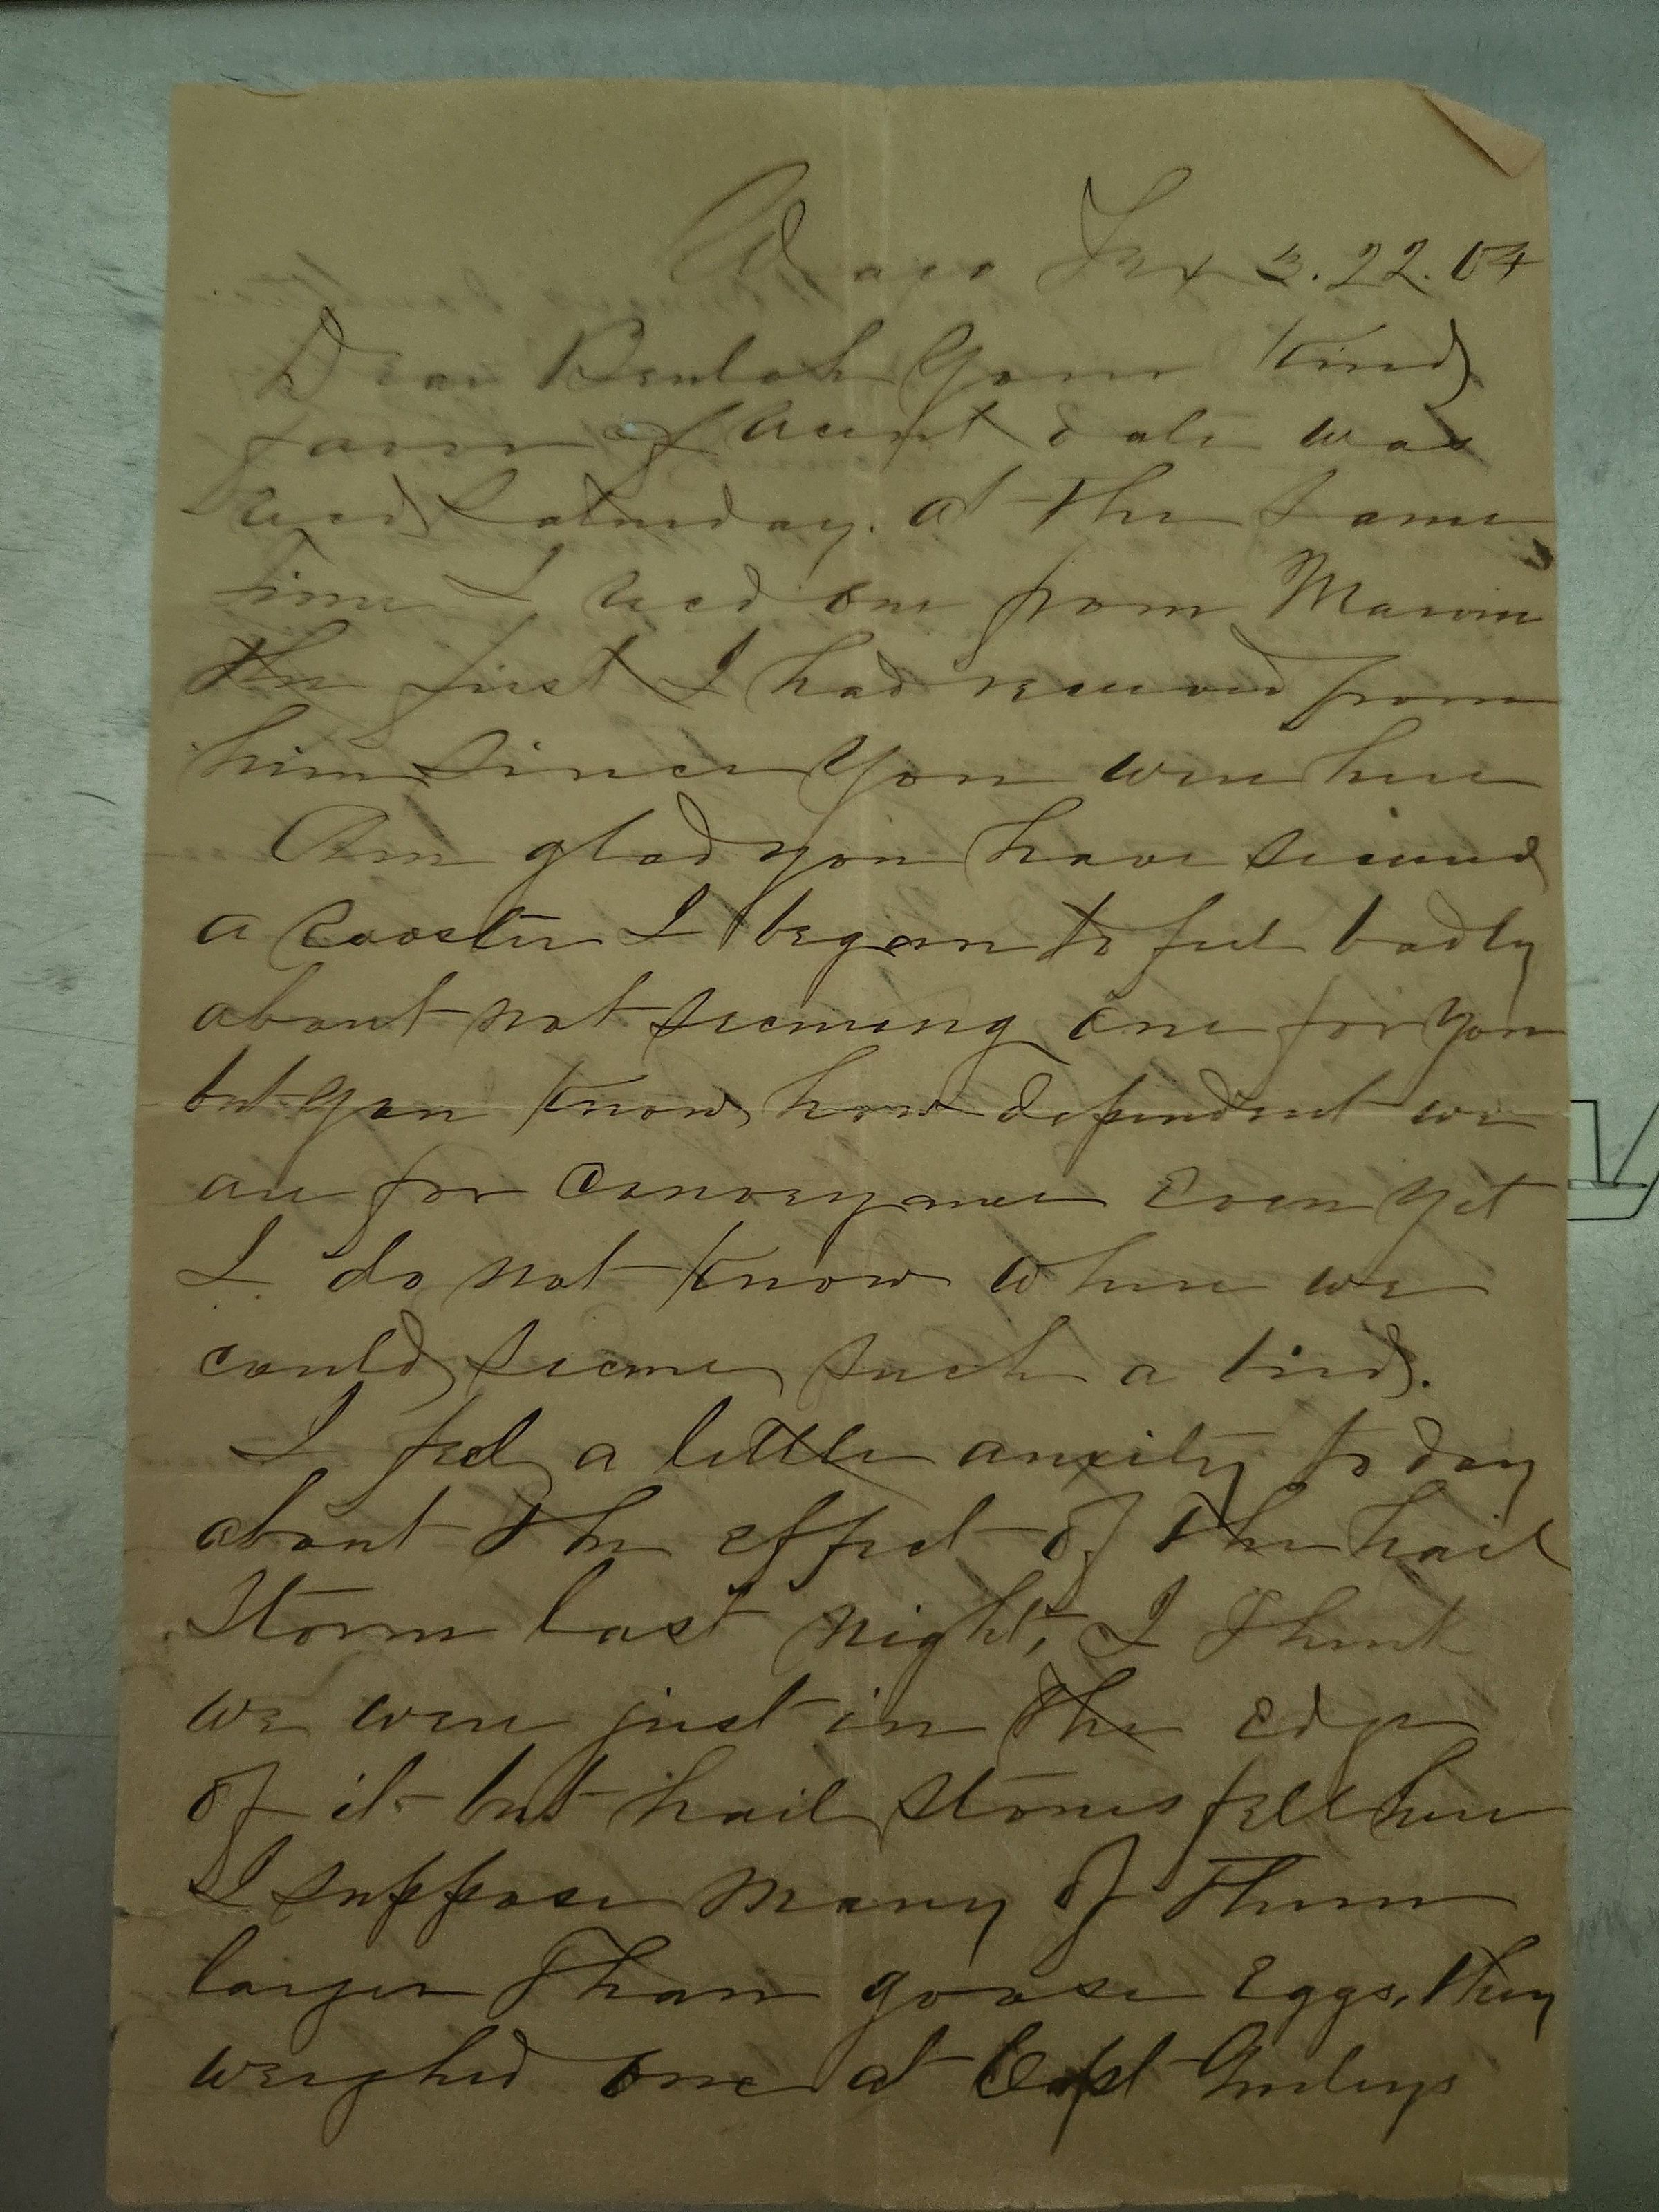 Waco Tex 3.22.04
Dear Beulah Your kind
favor of recent date was
recd Saturday. at the same
time I recd one from Marvin
the first I had received from
him since you were here
Am glad you have secured
a rooster I began to feel badly
about not securing one for you
but you know how dependent we
are for conveyance Even yet
I do not know where we
could secure such a bird.
I feel a little anxiety to day
about the effect of the hail
Storm last night, I think
we were just in the edge
of it but hail stones fell here
I suppose many of them
larger Than goose eggs, they
weighed one at Capt